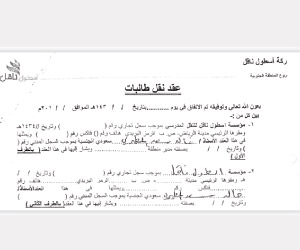 ركة أسطول ناقل
فروع المنطقة الجنوبية
أسطول ناقل
عقد نقل طالبات
بعون الله تعالى وتوفيقه تم الاتفاق في يوم .......... بتاريخ / / ١٤٣هـ الموافق / / ٢٠١م
بين كل من :-
١- مؤسسة أسطول ناقل للنقل المدرسي بموجب سجل تجاري رقم ( ) بتاريخ / /١٤٣٤هـ
ومقرها الرئيسي مدينة الرياض، ص. ب الرمز البريدي هاتف وفاكس رقم ( ) ويمثلها
في هذا العقد سعودي الجنسية بموجب السجل المدني رقم ( )
وتاريخ / / بصفته مدير منطقة ويشار إليها في هذا العقد بالطرف
الأول
٢- مؤسسة أسطول بموجب سجل تجاري رقم ( ) بتاريخ / /
ومقرها الرئيسي مدينة ص ب الرمز البريدي هاتف
وفاكس رقم ( ) ويمثلها في هذا العقد الأستاذ/
سعودي الجنسية بموجب السجل المدني رقم ( )
وتاريخ / / بصفته ويشار إليها في هذا العقد بالطرف الثاني